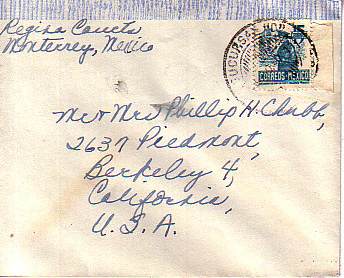 Regina
Monterrey, Mexico
SUCURSAL
CORREOS MEXICO
Mr & Mrs Phillip H. Chubb,
2637 Piedmont,
Berkeley 4,
California,
U. S. A.